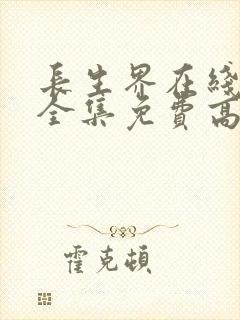 长生界在綫
全集免費高
霍克頓